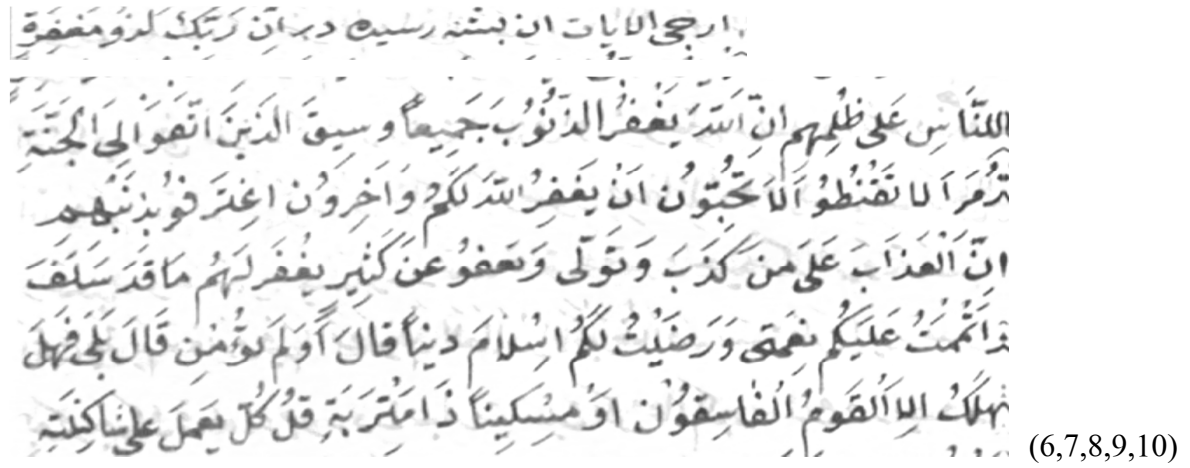 ارجی الایات ان رسیده در اِنّ رَبَّکَ لَذو مَغفِرَةٍ
لِلنَّاسِ عَلَی ظُلمِهِم اِنَّ اللّهَ یَغْفِرُ الذُّنُوبَ جَمِیعاً و سیقَ الَّذینَ اتَّقَوْا اِلَی الجَنَّةِ
زُمَراً لا تَقْنَطُو اَلا تُحِبُّوُن اَنْ یَغفِرَ اللّهُ لَکُم وَ اَخِروُن اعْتَرَفوُ بِذَنبِهِم
اِنَّ الْعَذَابَ عَلَی مَن کَذَبَ وَ تَوَلّی وَ یَعفوُ عَنْ کَثِیرٍ یُغفَر لَهُم مَا قَد سَلَفَ
وَ اَتْمَمتُ عَلَیکُم نِعمَتی وَ رَضَیْتُ لَکُم اِسْلامَ دیناً قالَ اَوَلَم تُؤمِن قَالَ بَلَی فَهَل
یُهلَکُ اِلا القَومُ الْفٰاسِقوُن اَوْ مِسکِیناً ذَا مَتْرَبَةٍ قُل کُلّ یَعمَلُ عَلی شاکِلَتِهِ
(6,7,8,9,10)